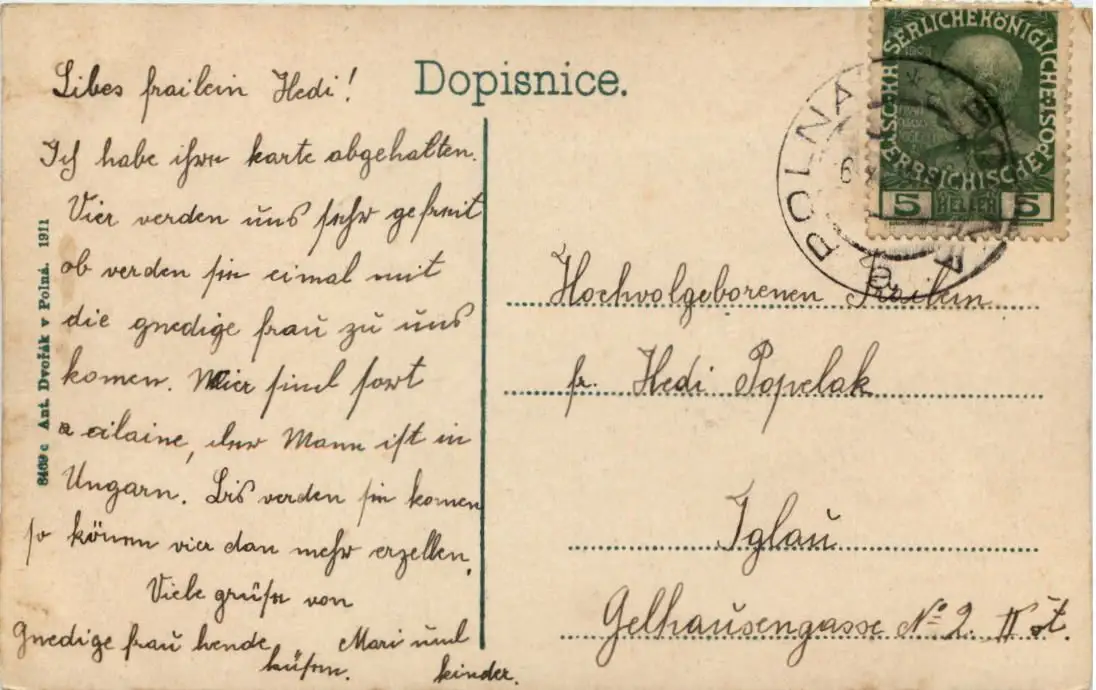 Dopisnice.
Libes frailein Hedi!
Ich habe ihre karte abgehalten.
Vier verden uns sehr gefreit
ob verden sie eimal mit
die gnedige frau zu uns
komen. Mier sind fort
a ailaine, der Mann ist in
Ungarn. Bis verden sie komen
so könen vier dan mehr erzellen.
Viele grüse von
Gnedige frau hende Mari und
küsen. kinder.
8469 c Ant. Dvořák v Polná. 1911
KAISERLICHEKÖNIGLICHE
ÖSTERREICHISCHEPOST
5 HELLER 5
POLNA
6
Hochvolgeborenen Frailein
fr. Hedi Popelak
Iglau
Gelhausengasse No 2. II št.